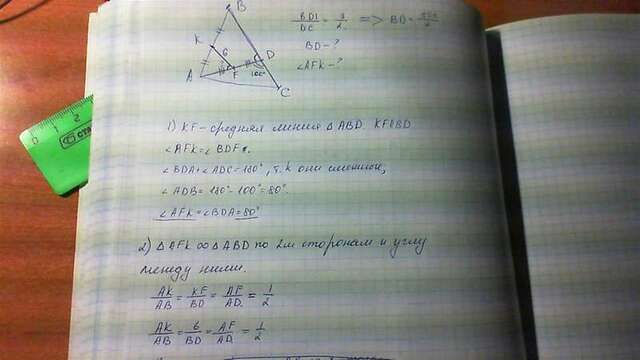 B
BD/DC = 3/2 => BD =
K
6
BD - ?
D
100°
∠AFK - ?
A
F
C
0 1 2
1) KF - средняя линия △ABD. KF∥BD
∠AFK = ∠BDF.
∠BDA + ∠ADC = 180°, т.к они смежные,
∠ADB = 180° - 100° = 80°.
∠AFK = ∠BDA = 80°
2) △AFK ∞ △ABD по 2м сторонам и углу
между ними.
AK/AB = KF/BD = AF/AD = 1/2
AK/AB = 6/BD = AF/AD = 1/2